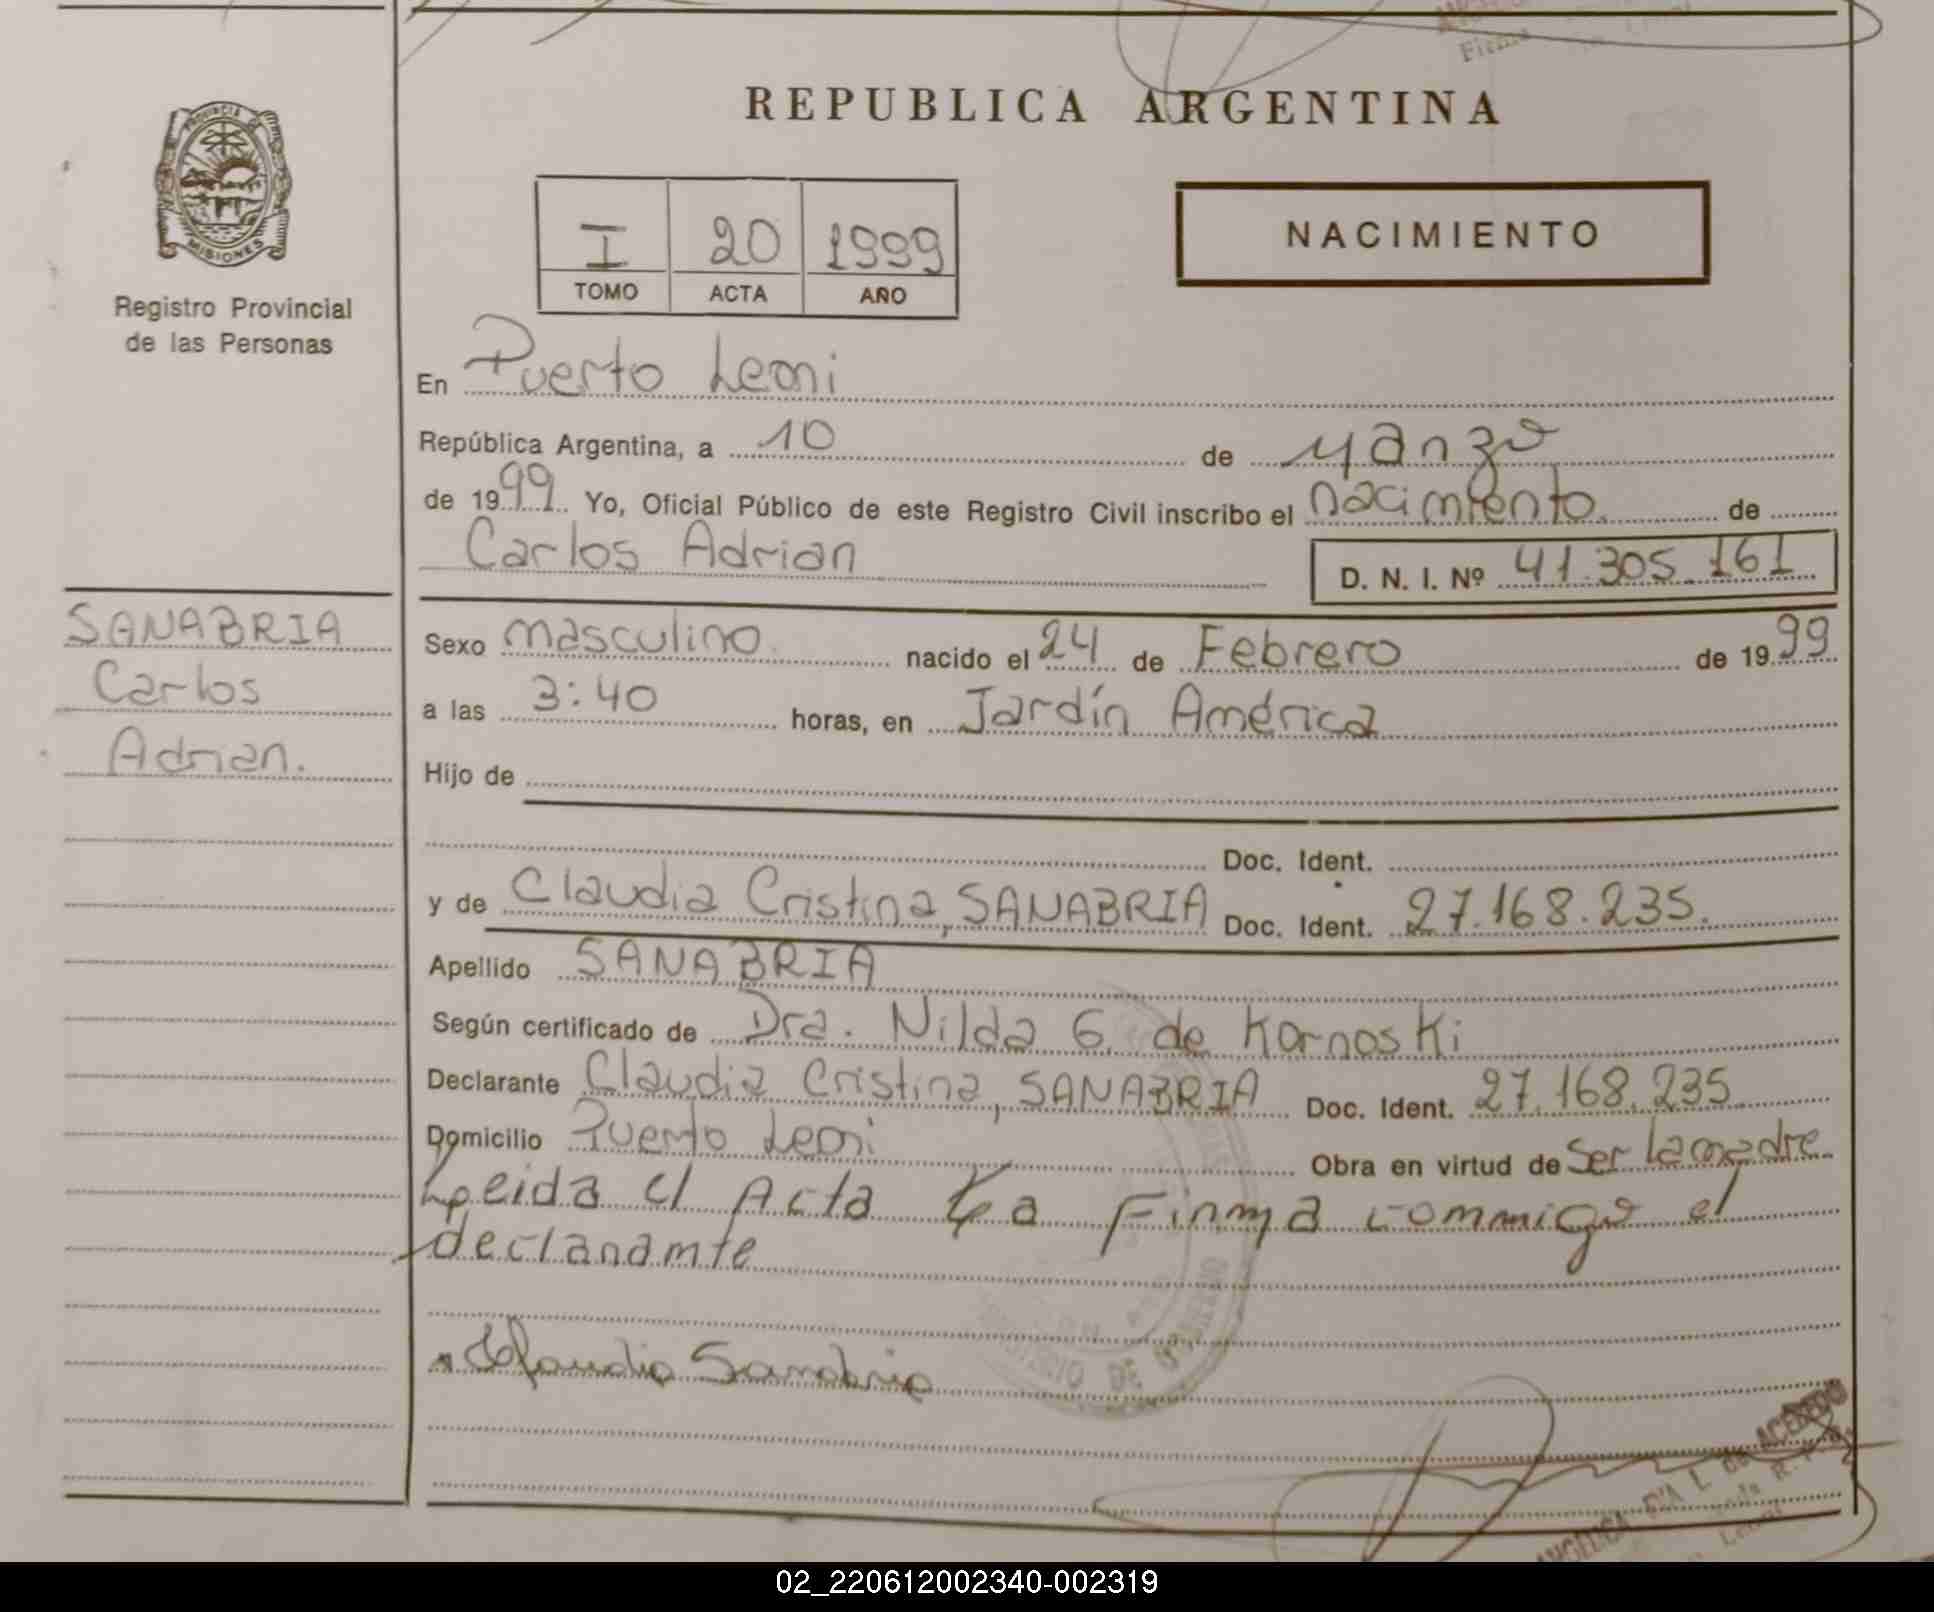 REPUBLICA ARGENTINA
PROVINCIA DE
MISIONES
Registro Provincial
de las Personas
I 20 1999
TOMO ACTA AÑO
NACIMIENTO
En Puerto Leoni
República Argentina, a 10 de Marzo
de 1999 Yo, Oficial Público de este Registro Civil inscribo el nacimiento de
Carlos Adrian D. N. I. Nº 41.305.161
SANABRIA
Carlos
Adrian.
Sexo masculino nacido el 24 de Febrero de 1999
a las 3:40 horas, en Jardín América
Hijo de
Doc. Ident.
y de Claudia Cristina, SANABRIA Doc. Ident. 27.168.235.
Apellido SANABRIA
Según certificado de Dra. Nilda G. de Kornoski
Declarante Claudia Cristina, SANABRIA Doc. Ident. 27.168.235
Domicilio Puerto Leoni Obra en virtud de Ser la madre
Leida el Acta La Firma conmigo el
declarante
Claudia Sanabria
MINISTERIO DE GOBIERNO
ANGELICA L. de ACEVEDO
02_220612002340-002319